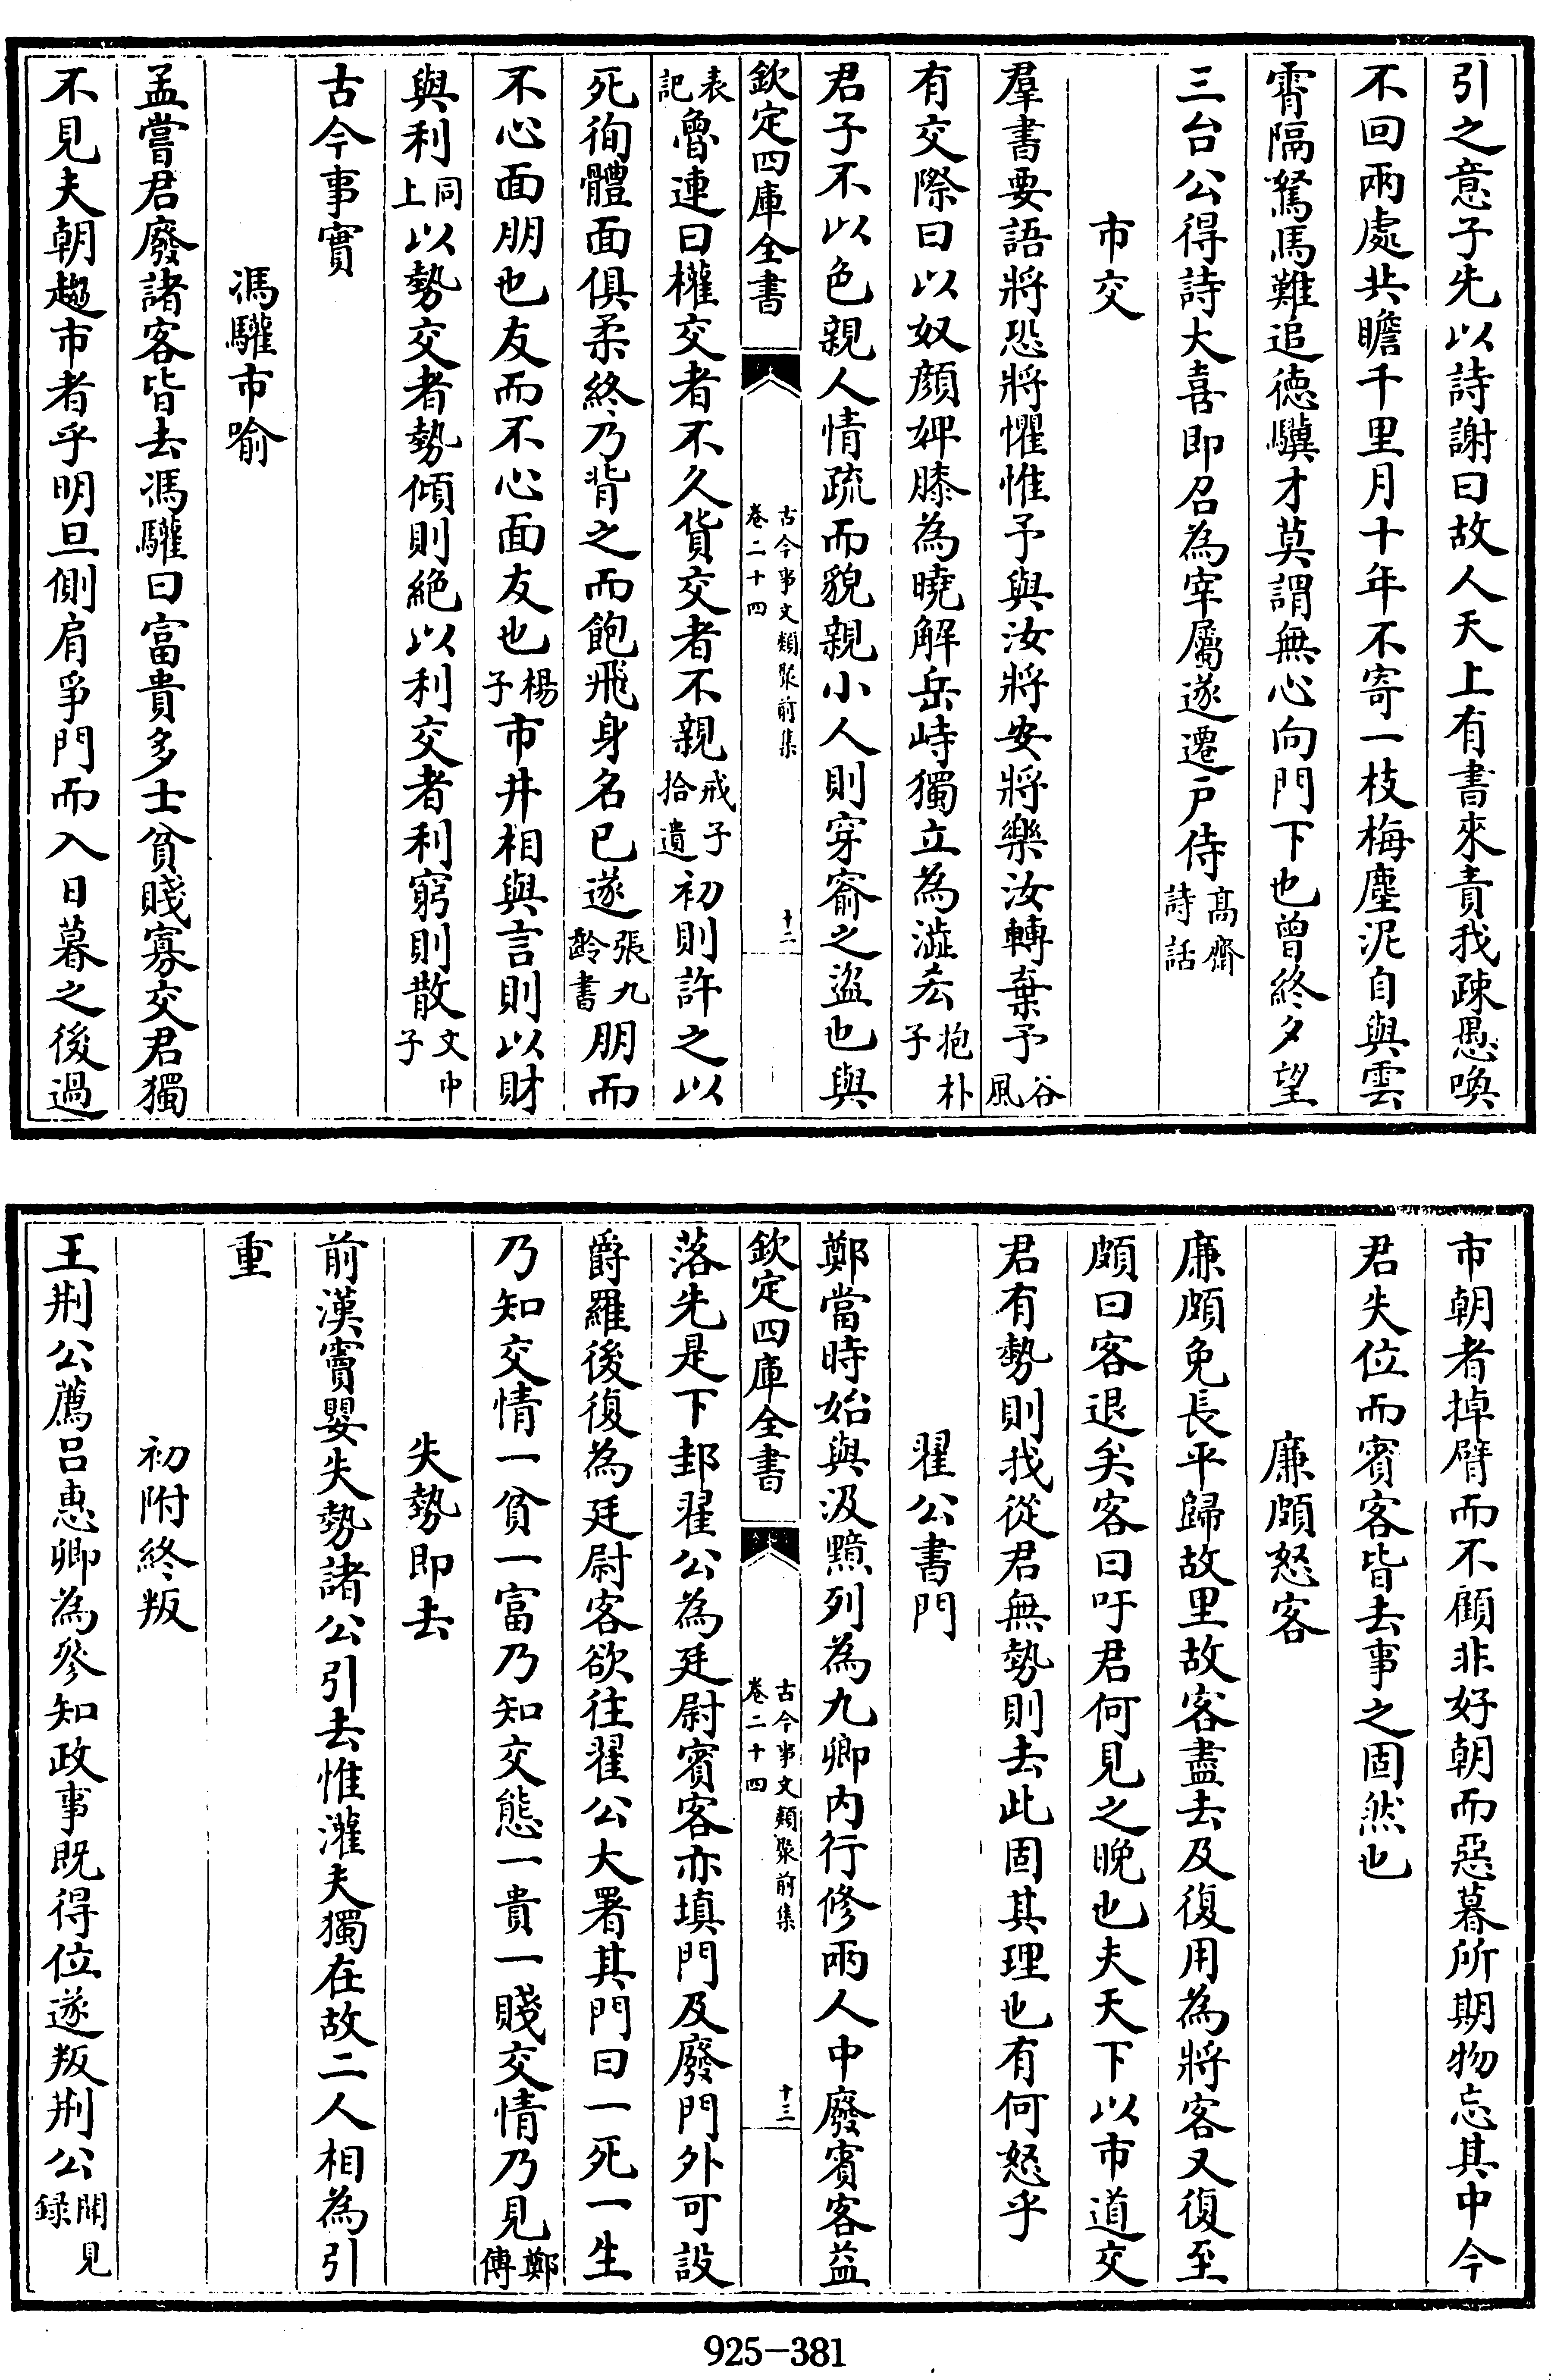 引之意子先以詩謝曰故人天上有書來責我疎愚喚
不回兩處共瞻千里月十年不寄一枝梅塵泥自與雲
霄隔駑馬難追徳驥才莫謂無心向門下也曾終夕望
三台公得詩大喜即召為宰屬遂遷戸侍髙齋詩話
市交
羣書要語將恐將懼惟予與汝將安將樂汝轉棄予谷風
有交際曰以奴顔婢膝為曉解岳峙獨立為澁吝抱朴子
君子不以色親人情疏而貌親小人則穿窬之盜也與
欽定四庫全書
古今事文類聚前集
卷二十四
十二
表記魯連曰權交者不久貨交者不親戒子拾遺初則許之以
死徇體面俱柔終乃背之而飽飛身名已遂張九齡書朋而
不心面朋也友而不心面友也楊子市井相與言則以財
與利同上以勢交者勢傾則絶以利交者利窮則散文中子
古今事實
馮驩市喻
孟嘗君廢諸客皆去馮驩曰富貴多士貧賤寡交君獨
不見夫朝趨市者乎明旦側肩爭門而入日暮之後過
市朝者掉臂而不顧非好朝而惡暮所期物忘其中今
君失位而賓客皆去事之固然也
廉頗怒客
廉頗免長平歸故里故客盡去及復用為將客又復至
頗曰客退矣客曰吁君何見之晚也夫天下以市道交
君有勢則我從君無勢則去此固其理也有何怒乎
翟公書門
鄭當時始與汲黯列為九卿内行修兩人中廢賓客益
欽定四庫全書
古今事文類聚前集
卷二十四
十三
落先是下邽翟公為廷尉賓客亦填門及廢門外可設
爵羅後復為廷尉客欲往翟公大署其門曰一死一生
乃知交情一貧一富乃知交態一貴一賤交情乃見鄭傳
失勢即去
前漢竇嬰失勢諸公引去惟灌夫獨在故二人相為引
重
初附終叛
王荆公薦吕惠卿為參知政事既得位遂叛荆公聞見録
925-381